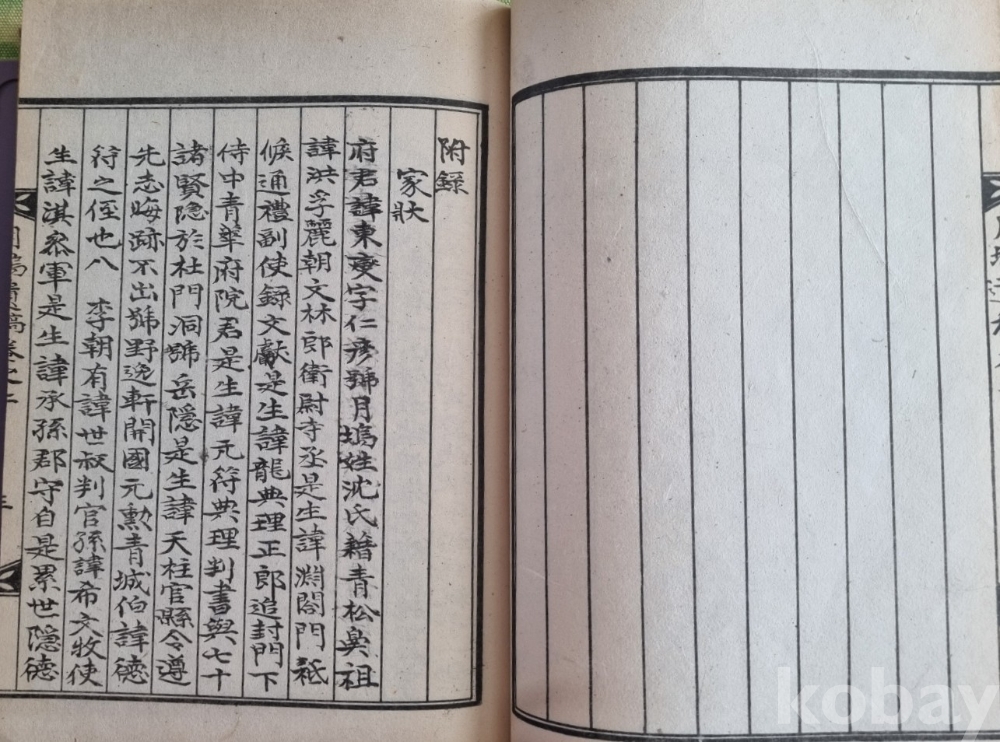 附錄
家狀
府君諱東奭字仁彦號月塢姓沈氏籍青松鼻祖
諱洪孚麗朝文林郎衛尉寺丞是生諱淵閤門祗
候通禮副使錄文獻是生諱龍典理正郎追封門下
侍中青華府院君是生諱元符典理判書與七十
諸賢隐於杜門洞號岳隐是生諱天柱官縣令遵
先志晦跡不出號野逸軒開國元勲青城伯諱德
符之侄也八 李朝有諱世叔判官孫諱希文牧使
生諱淇叅軍是生諱承孫郡守自是累世隱德
kobay